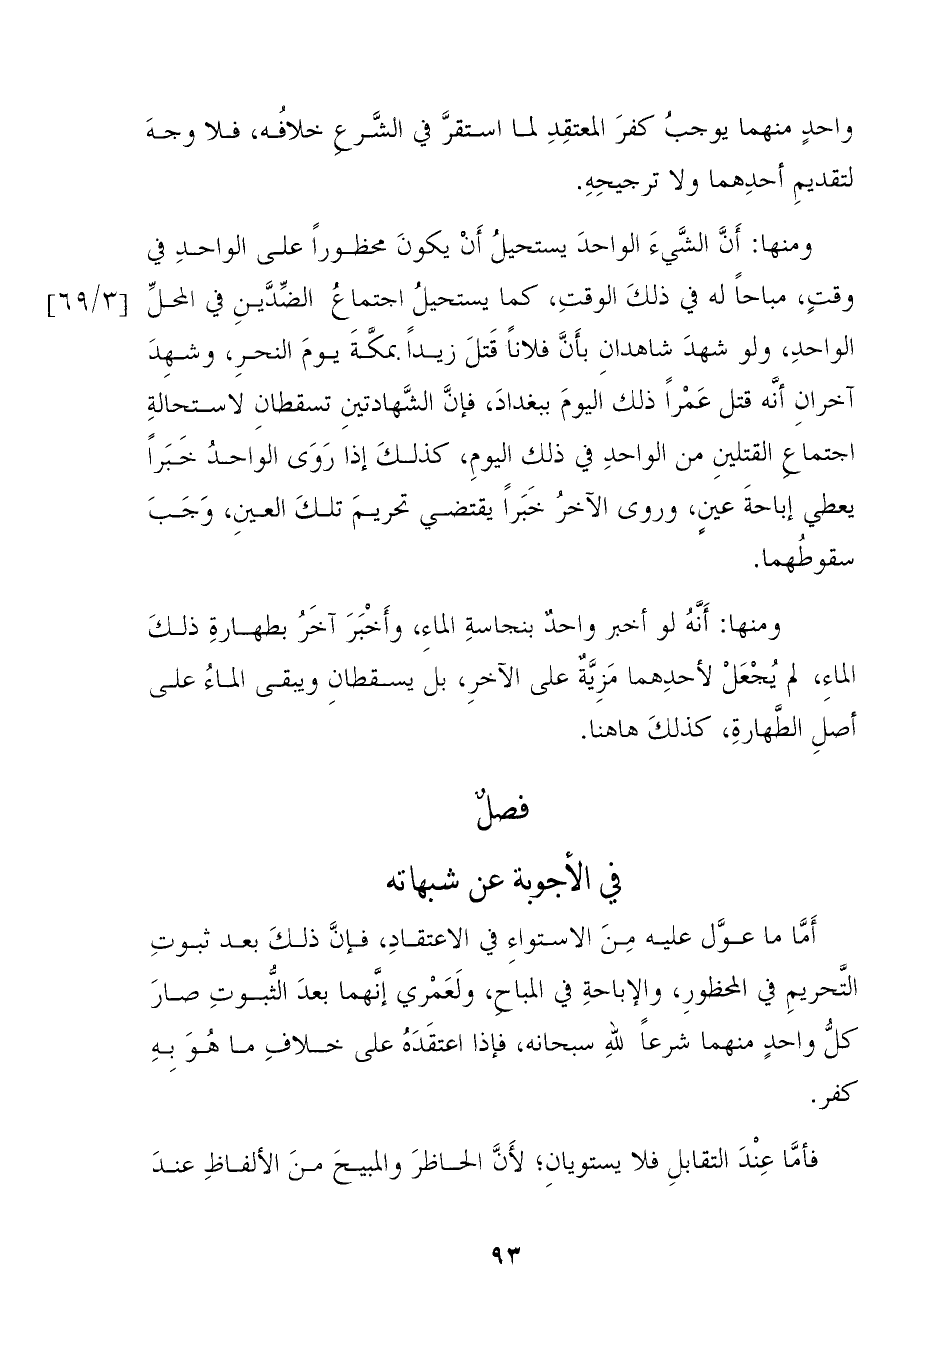 واحدٍ منهما يوجبُ كفرَ المعتقِدِ لما استقرَّ في الشَّرعِ خلافُه، فلا وجهَ
لتقديمِ أحدِهما ولا ترجيحِهِ.
ومنها: أَنَّ الشَّيءَ الواحدَ يستحيلُ أَنْ يكونَ محظوراً على الواحدِ في
وقتٍ، مباحاً له في ذلكَ الوقتِ، كما يستحيلُ اجتماعُ الضِّدَّينِ في المحلِّ [٦٩/٣]
الواحدِ، ولو شهدَ شاهدانِ بأَنَّ فلاناً قَتلَ زيداً بمكَّةَ يومَ النحرِ، وشهدَ
آخرانِ أنَّه قتل عَمْراً ذلك اليومَ ببغدادَ، فإنَّ الشَّهادتينِ تسقطانِ لاستحالةِ
اجتماعِ القتلينِ من الواحدِ في ذلك اليومِ، كذلكَ إذا رَوَى الواحدُ خَبَراً
يعطي إباحةَ عينٍ، وروى الآخرُ خَبَراً يقتضي تحريمَ تلكَ العينِ، وَجَبَ
سقوطُهما.
ومنها: أَنَّهُ لو أخبر واحدٌ بنجاسةِ الماءِ، وأَخْبَرَ آخَرُ بطهارةِ ذلكَ
الماءِ، لم يُجْعَلْ لأحدِهما مَزِيَّةٌ على الآخرِ، بل يسقطانِ ويبقى الماءُ على
أصلِ الطَّهارةِ، كذلكَ هاهنا.
فصلٌ
في الأجوبة عن شبهاته
أَمَّا ما عوَّل عليه مِنَ الاستواءِ في الاعتقادِ، فإنَّ ذلكَ بعد ثبوتِ
التَّحريمِ في المحظورِ، والإباحةِ في المباحِ، ولَعَمْري إنَّهما بعدَ الثُّبوتِ صارَ
كلُّ واحدٍ منهما شرعاً للهِ سبحانه، فإذا اعتقَدَهُ على خلافِ ما هُوَ بِهِ
كفر.
فأمَّا عِنْدَ التقابلِ فلا يستويانِ؛ لأَنَّ الحاظرَ والمبيحَ منَ الألفاظِ عندَ
٩٣